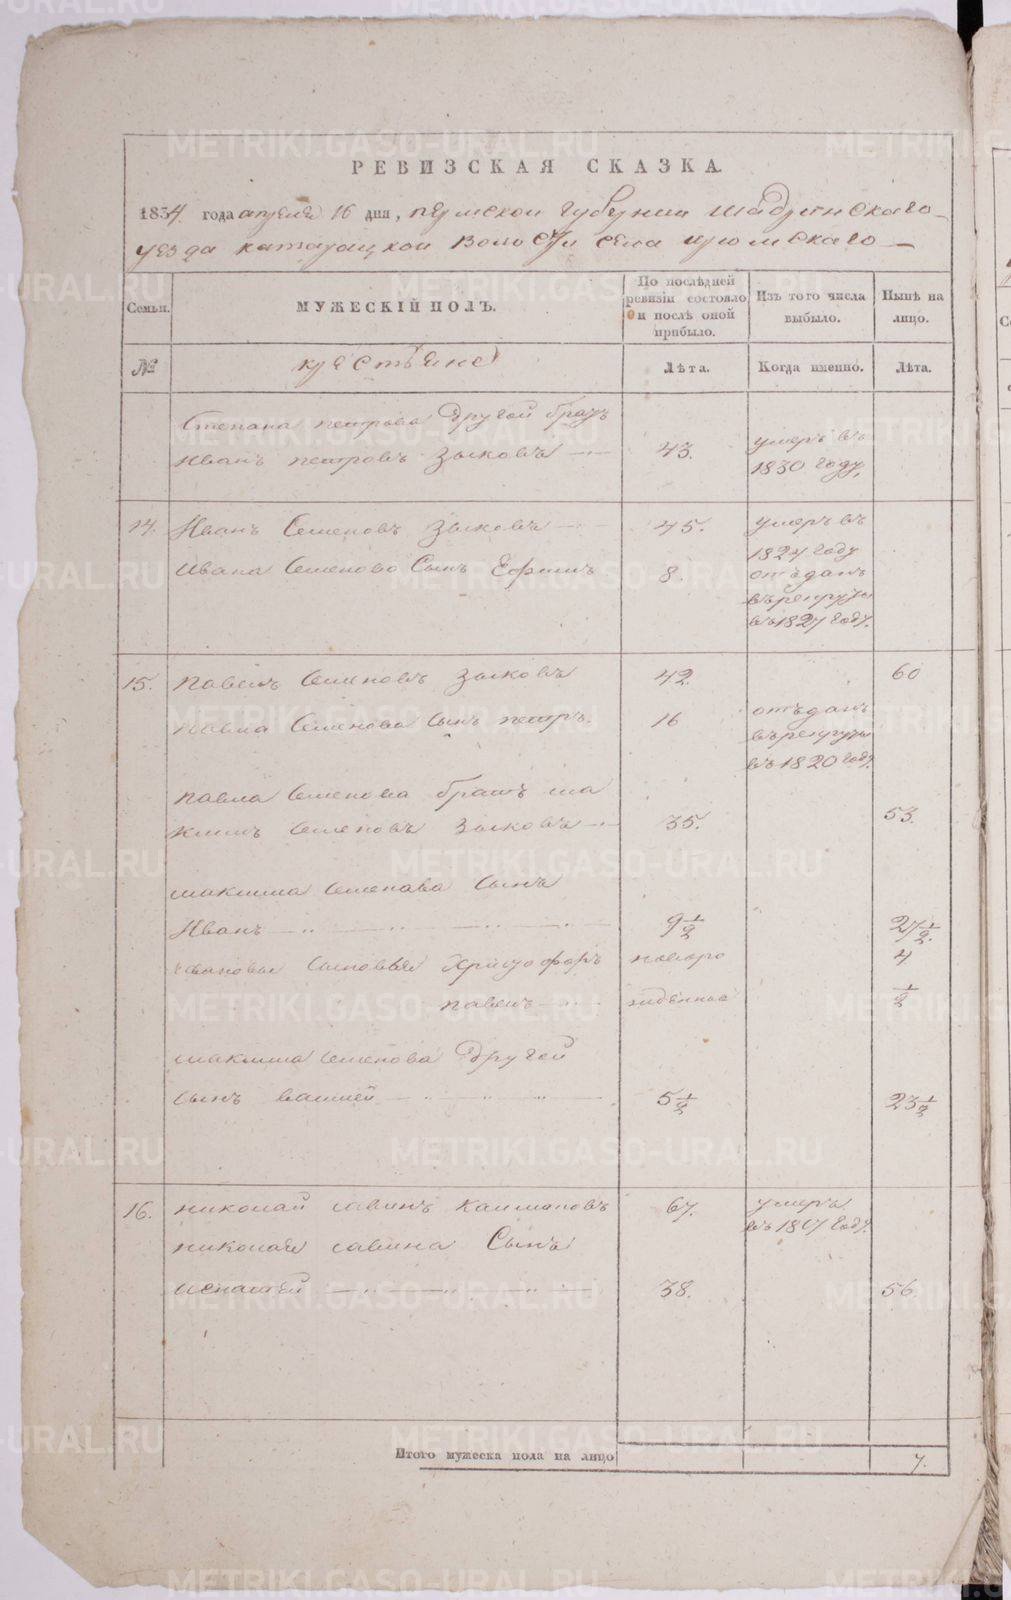 РЕВИЗСКАЯ СКАЗКА.
1834 года апреля 16 дня, пермской губернии шадринскаго
уезда катайцкой Волости села
Семьи.
МУЖЕСКІЙ ПОЛЪ.
По послѣдней
ревизіи состояло
и послѣ оной
прибыло.
Изъ того числа
выбыло.
Нынѣ на
лицо.
№
крестьяне
Лѣта.
Когда именно.
Лѣта.
Степана петрова другой братъ
Иванъ петровъ Зыковъ 43. умеръ въ
1830 году,
14. Иванъ Семеновъ Зыковъ 45. умеръ въ
1824 году
Ивана Семенова Сынъ Ефимъ 8. отъданъ
въ рекруты
въ 1827 году.
15. павелъ Семеновъ Зыковъ 42. 60
павла Семенова Сынъ петръ. 16 отъданъ
въ рекруты
въ 1820 году.
павла Семенова братъ ма
ксимъ Семеновъ Зыковъ 35. 53.
максима Семенова Сынъ
Иванъ 9 1/2 27 1/2.
Ивановы Сыновья Христофоръ новоро 4
павелъ жденные 1/2
максима Семенова другой
Сынъ 5 1/2 23 1/2
16. николай савинъ 67. умеръ
въ году.
николая савина Сынъ
38. 56.
Итого мужеска пола на лицо 7.
METRIKI.GASO-URAL.RU